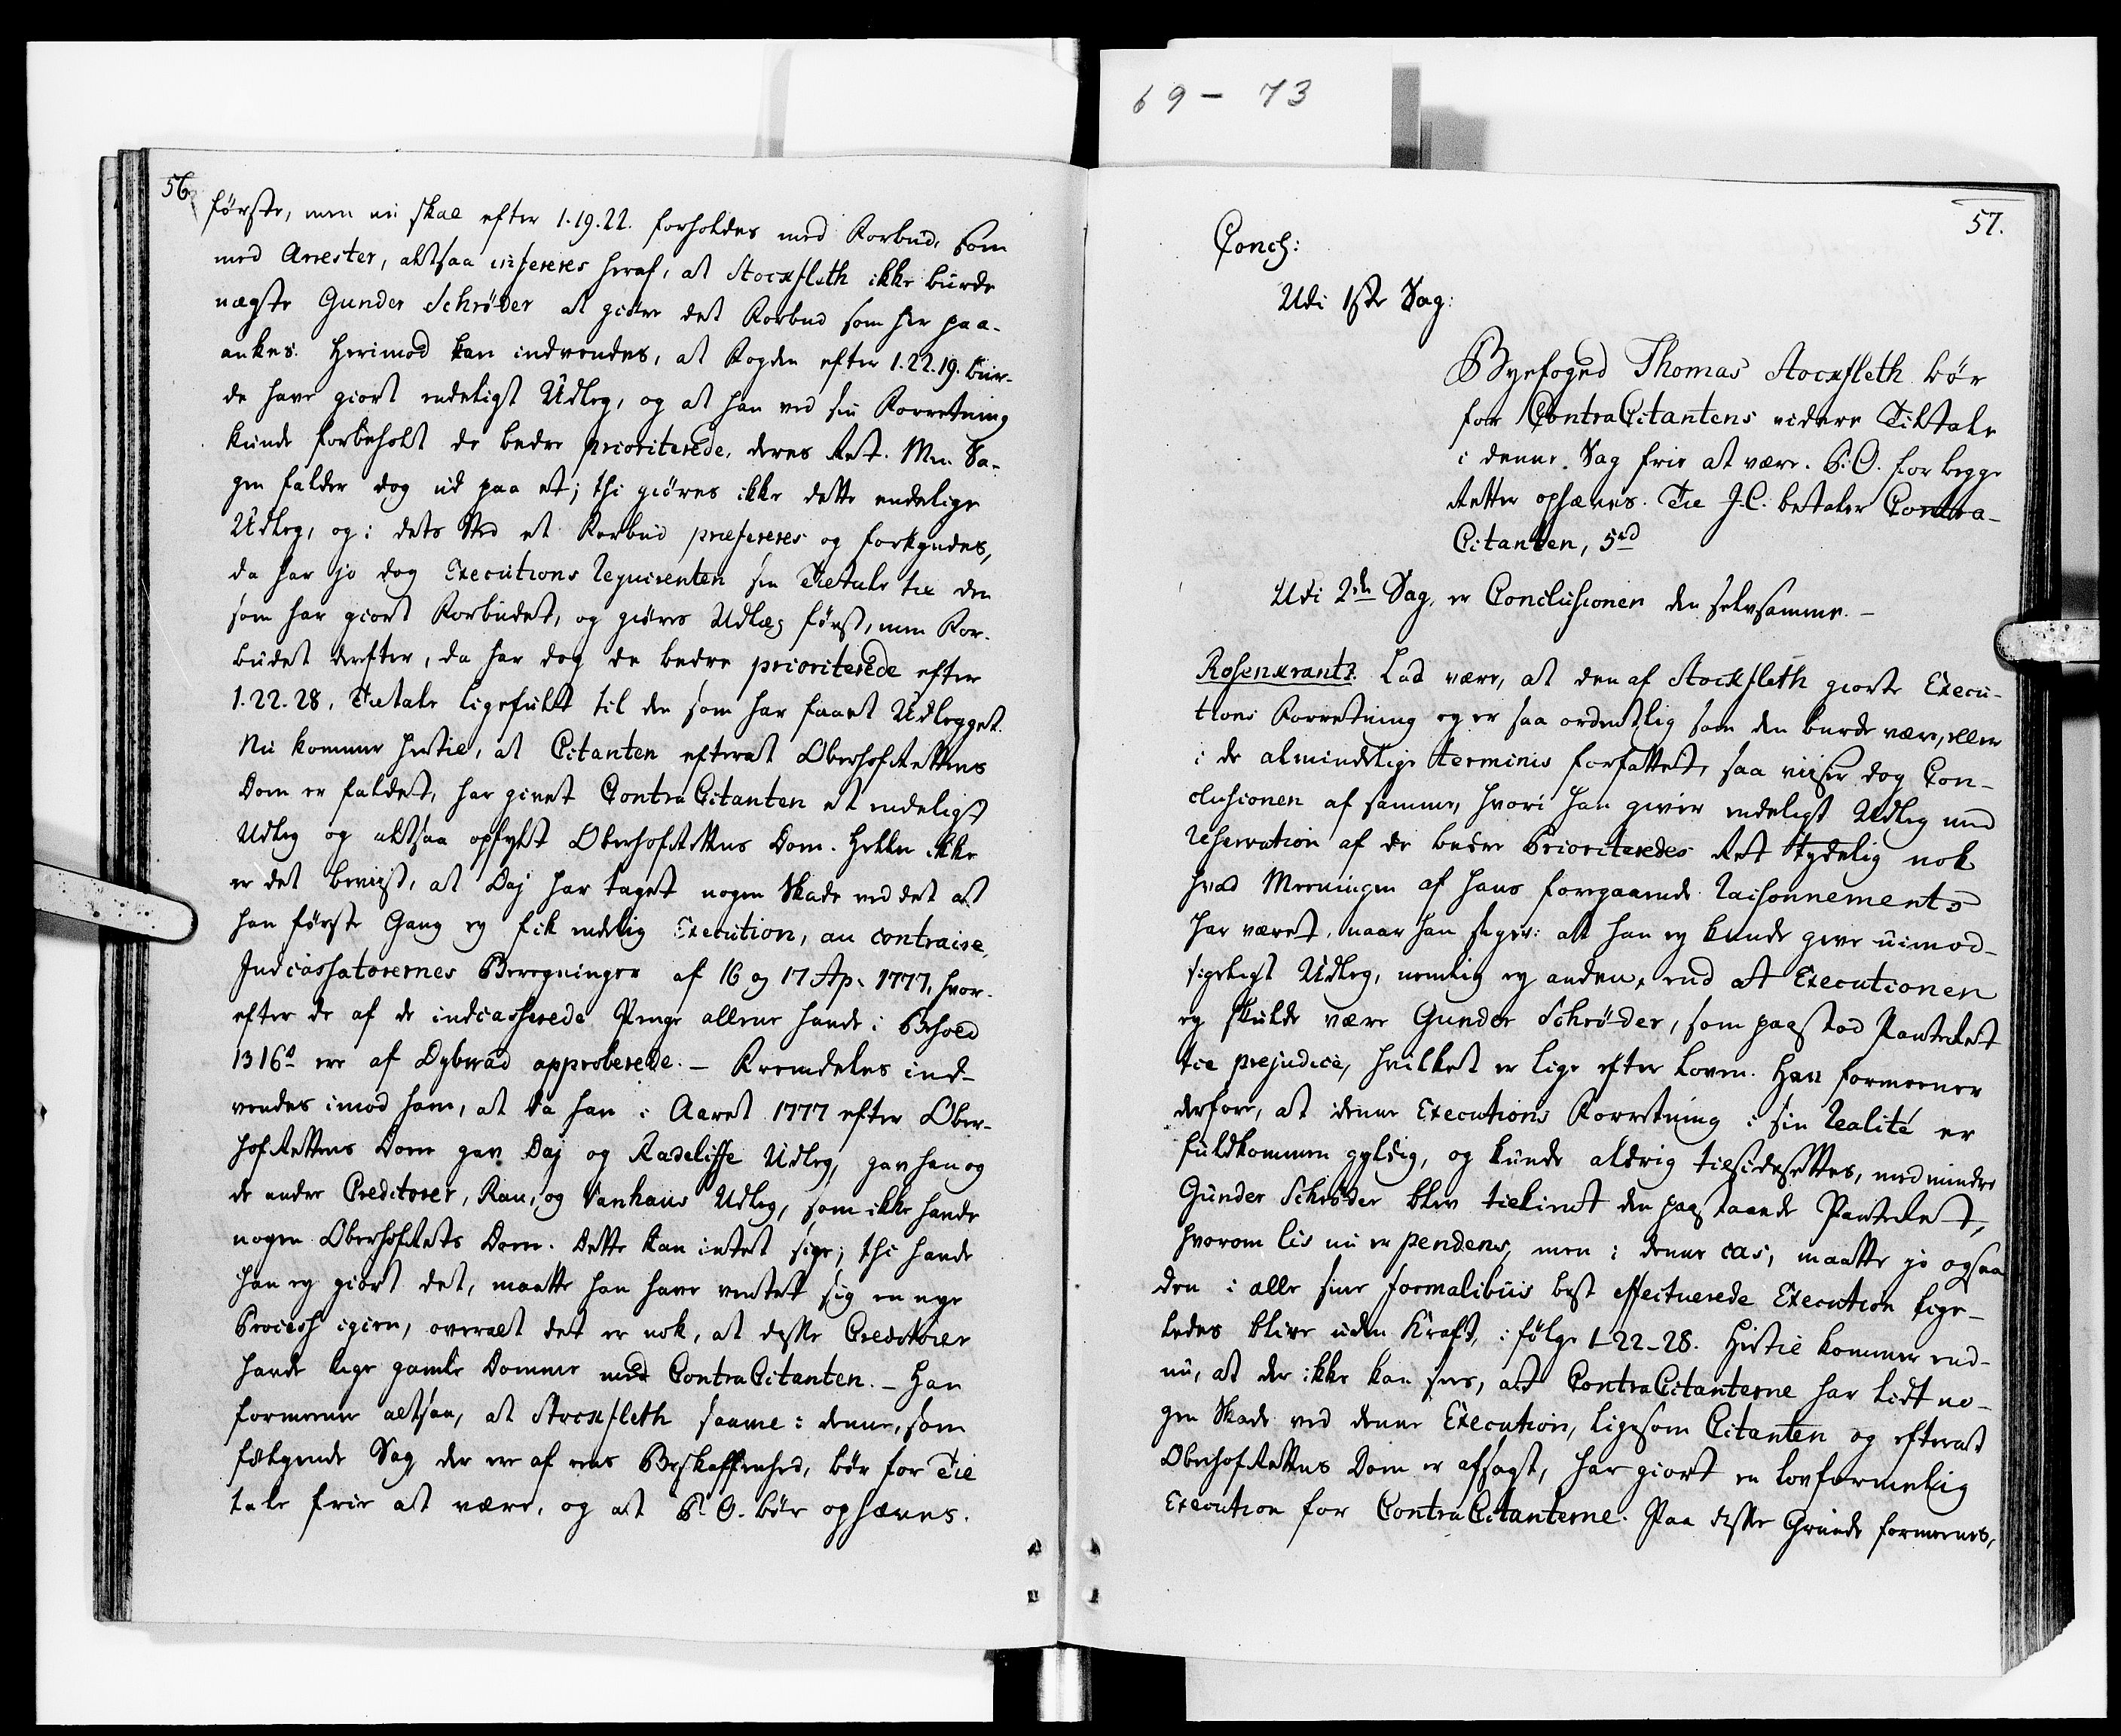 69 - 73
56.
første, men nu skal efter 1.19.22. forholdes med Forbud, som
med Arrester, altsaa infereres heraf, at Stockfleth ikke burde
nægte Gunder Schrøder at giøre det Forbud som her paa-
ankes. Herimod kan indvendes, at Fogden efter 1.22.19. bur-
de have giort endeligt Udleg, og at han ved sin Forretning
kunde forbeholt de bedre prioriterede, deres Ret. Men Sa-
gen falder dog ud paa et; thi giøres ikke dette endelige
Udleg, og i dets Sted et Forbud præfereres og forkyndes,
da har jo dog Executions Requirenten sin Tiltale til den
som har giort Forbudet, og giøres Udlæg først, men For-
budet derefter, da har dog de bedre prioriterede efter
1.22.28. Tiltale ligefuldt til den som har faaet Udlegget.
Nu kommer hertil, at Citanten efterat OberhofRettens
Dom er faldet, har givet ContraCitanten et endeligt
Udleg og altsaa opfyldt OberhofRettens Dom. Heller ikke
er det beviist, at Daj har taget nogen Skade ved det at
han første Gang ey fik endelig Execution, au contraire,
Indcassatorernes Beregninger af 16 og 17 Ap. 1777, hvor-
efter de af de indcasserede Penge allene havde i Behold
1316 ere af Dybvad approberede. — Fremdeles ind-
vendes imod ham, at da han i Aaret 1777 efter Ober-
hofRettens Dom gav Daj og Radeliffe Udleg, gav han og
de andre Creditorer, Rau, og Vanhaus Udleg, som ikke havde
nogen OberhofRets Dom. Dette kan intet sige; thi havde
han ey giort det, maatte han have ventet sig en nye
Process igien, overalt det er nok, at disse Creditorer
havde lige gamle Domme med ContraCitanten. — Han
formener altsaa, at Stockfleth saavel i denne, som
følgende Sag, der ere af eens Beskaffenhed, bør for Til
tale frie at være, og at P.O. bør ophæves.
57.
Concl:
Udi 1ste Sag:
Byefoged Thomas Stockfleth bør
for ContraCitantens videre Tiltale
i denne Sag frie at være. P.O. for begge
Retter ophæves. Til J.C. betaler Contra-
Citanten, 5 rd
Udi 2den Sag, er Conclusionen den selvsamme. —
Rosenkrantz. Lad være, at den af Stockfleth giorte Execu-
tions Forretning ey er saa ordentlig som den burde være, eller
i de almindelige terminis forfattet, saa viiser dog Con-
clusionen af samme, hvori han giver endeligt Udleg med
reservation af de bedre Prioriteredes Ret tydelig nok
hvad Meeningen af hans foregaaende raisonnements
har været, naar han siger: at han ey kunde give uimod-
sigeligt Udleg, nemlig ey anden, end at Executionen
ey skulde være Gunder Schrøder, som paastod PanteRet
til prejudice, hvilket er lige efter Loven. Han formeener
derfore, at denne Executions Forretning i sin realité er
fuldkommen gyldig, og kunde aldrig tilsidesettes, med mindre
Gunder Schrøder blev tilkient den paastaaende PanteRet,
hvorom lis nu er pendens, men i denne cas, maatte jo ogsaa
den i alle sine formalibus best effectuerede Execution lige-
ledes blive uden Kraft, i følge 1-22-28. Hertil kommer end-
nu, at der ikke kan sees, at ContraCitanterne har lidt no-
gen Skade ved denne Execution, ligesom Citanten og efterat
OberhofRettens Dom er afsagt, har giort en lovformelig
Execution for ContraCitanterne. Paa disse Grunde formeenes,